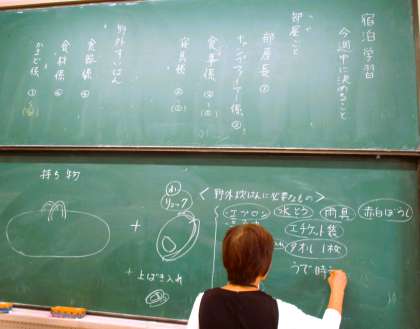 宿泊学習
今週中に決めること
部屋ごと
部屋長①
キャンプファイヤー係②
食事係
寝具係
野外すいはん
食器係⑤
食材係④
かまど係
持ち物
+
小
リュック
+上ばき入れ
<野外炊はんに必要なもの>
エプロン 水とう 雨具 赤白ぼうし
エチケット袋
タオル1枚
うで時